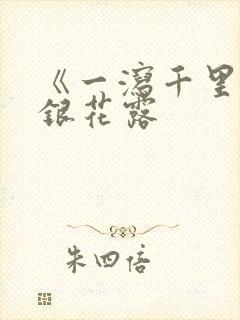 《一瀉千里
銀花露
朱四倍